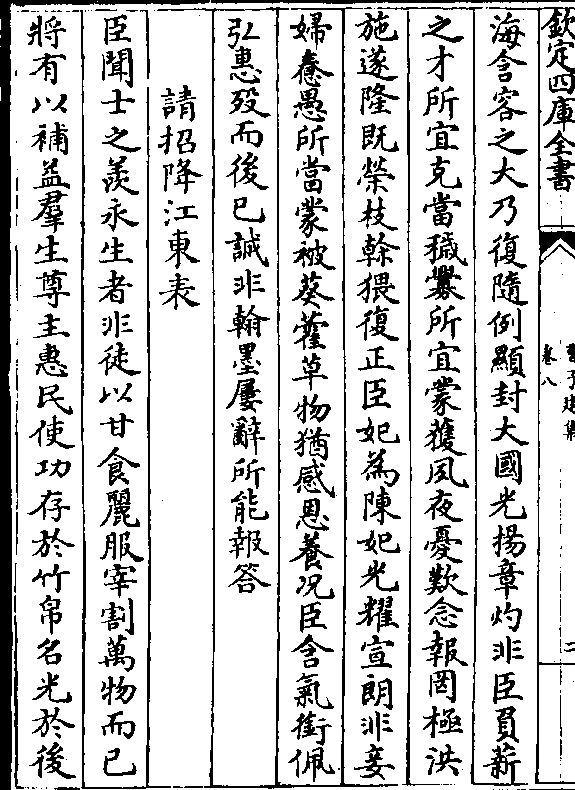 欽定四庫全書
曹子建集
卷八
二
海含容之大乃復隨例顯封大國光揚章灼非臣負薪
之才所宜克當穢釁所宜蒙獲夙夜憂歎念報罔極洪
施遂隆既榮枝幹猥復正臣妃為陳妃光耀宣朗非妾
婦憃愚所當蒙被葵藿草物猶感恩養况臣含氣銜佩
弘惠歿而後已誠非翰墨屢辭所能報答
請招降江東表
臣聞士之羨永生者非徒以甘食麗服宰割萬物而已
將有以補益羣生尊主惠民使功存於竹帛名光於後